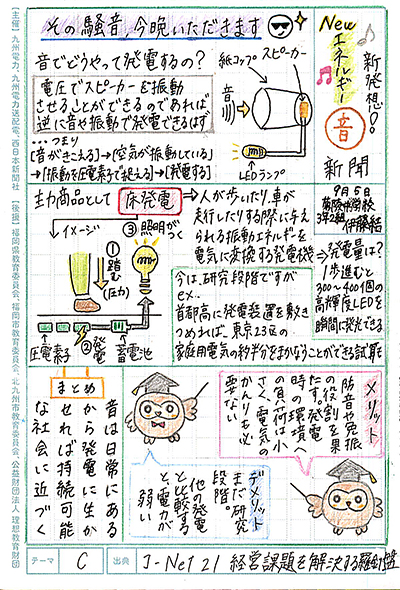 その騒音,今晩いただきます
New
エネルギー
新発想!!
音
新聞
9月5日
3年2組
伊藤結
音でどうやって発電するの?
電圧でスピーカーを振動
させることができるのであれば,
逆に音や振動で発電できるはず
…つまり
[音がきこえる]→[空気が振動している]
→[振動を圧電素で捉える]→[発電する]
紙コップ
スピーカー
音
LEDランプ
主な商品として
床発電
→人が歩いたり,車が
走行したりする際に与え
られる振動エネルギーを
電気に変換する発電機
⇒発電量は?
1歩進むと
300~400個の
高輝度LEDを
瞬間に発光できる
イメージ
①踏む
(圧力)
②発電
③照明がつく
圧電素子
蓄電池
今は,研究段階ですが
ex…
首都高に発電装置を敷き
つめれば,東京23区の
家庭用電気の約半分をまかなうことができる試算も
メリット
防音や免振
の役割を果
たす。発電
時の環境へ
の負荷は小
さく、電気の
かんりも必
要ない
デメリット
まだ研究
段階。
他の発電
と比較する
と、電力が
弱い
まとめ
音は日常にある
から発電に生か
せれば持続可能
な社会に近づく
テーマ
C
出典
J-Net21 経営課題を解決する羅針盤
【主催】九州電力、九州電力送配電、西日本新聞社 【後援】福岡県教育委員会、福岡市教育委員会、北九州市教育委員会、公益財団法人 理想教育財団